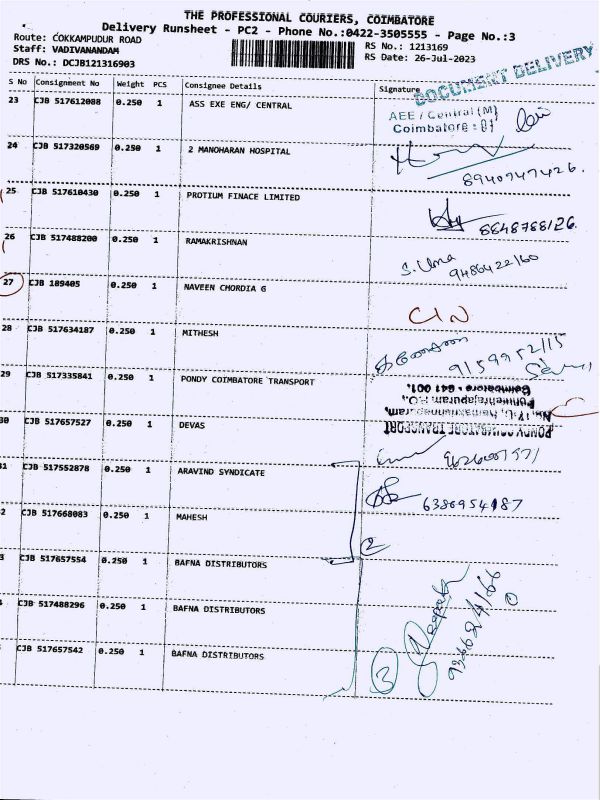 THE PROFESSIONAL COURIERS, COIMBATORE
Delivery Runsheet - PC2 - Phone No.:0422-3505555 - Page No.:3
Route: COKKAMPUDUR ROAD
RS No.: 1213169
Staff: VADIVANANDAM
RS Date: 26-Jul-2023
DRS No.: DCJB121316903
DOCUMENT DELIVERY
S No Consignment No Weight PCS Consignee Details Signature
23 CJB 517612088 0.250 1 ASS EXE ENG/ CENTRAL
AEE / Central (M)
Coimbatore - 01
24 CJB 517320569 0.250 1 2 MANOHARAN HOSPITAL
8940747426.
25 CJB 517610430 0.250 1 PROTIUM FINACE LIMITED
8848788126.
26 CJB 517488200 0.250 1 RAMAKRISHNAN
S. Uma
9486422160
27 CJB 189405 0.250 1 NAVEEN CHORDIA G
28 CJB 517634187 0.250 1 MITHESH
9159952115
29 CJB 517335841 0.250 1 PONDY COIMBATORE TRANSPORT
PONDY COIMBATORE TRANSPORT
Coimbatore - 641 001.
30 CJB 517657527 0.250 1 DEVAS
31 CJB 517552878 0.250 1 ARAVIND SYNDICATE
6386954187
2 CJB 517668083 0.250 1 MAHESH
2
3 CJB 517657554 0.250 1 BAFNA DISTRIBUTORS
CJB 517488296 0.250 1 BAFNA DISTRIBUTORS
CJB 517657542 0.250 1 BAFNA DISTRIBUTORS
3